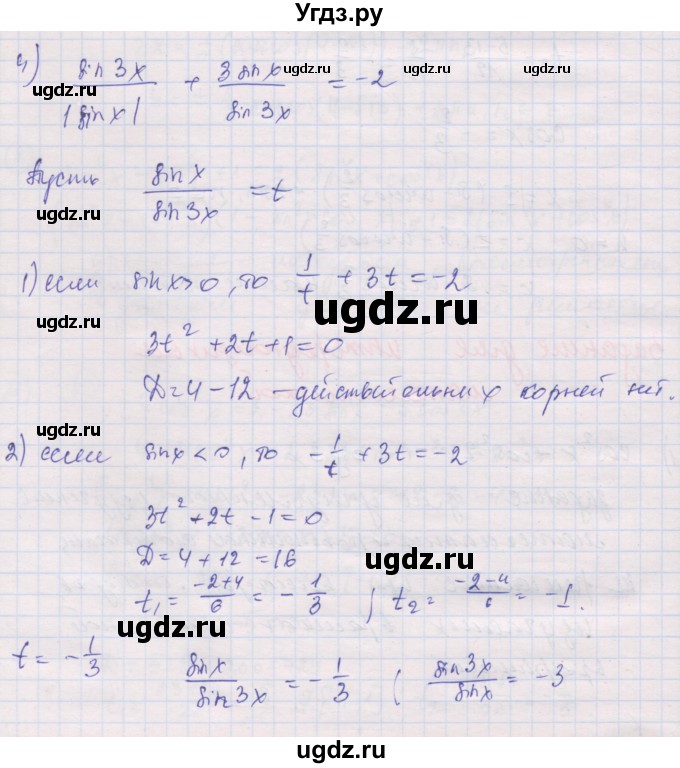 Угдз.ру
4) sin 3x / |sin x| + 3 sin x / sin 3x = -2
ugdz.ru ugdz.ru ugdz.ru
ugdz.ru
Пусть sin x / sin 3x = t
ugdz.ru
1) если sin x > 0, то 1/t + 3t = -2
ugdz.ru
ugdz.ru
3t² + 2t + 1 = 0
D = 4 - 12 - действительных корней нет.
ugdz.ru
2) если sin x < 0, то - 1/t + 3t = -2
3t² + 2t - 1 = 0
D = 4 + 12 = 16
ugdz.ru
t₁ = -2+4 / 6 = - 1/3 , t₂ = -2-4 / 6 = -1.
t = - 1/3 sin x / sin 3x = - 1/3 ( sin 3x / sin x = -3
ugdz.ru
ugdz.ru